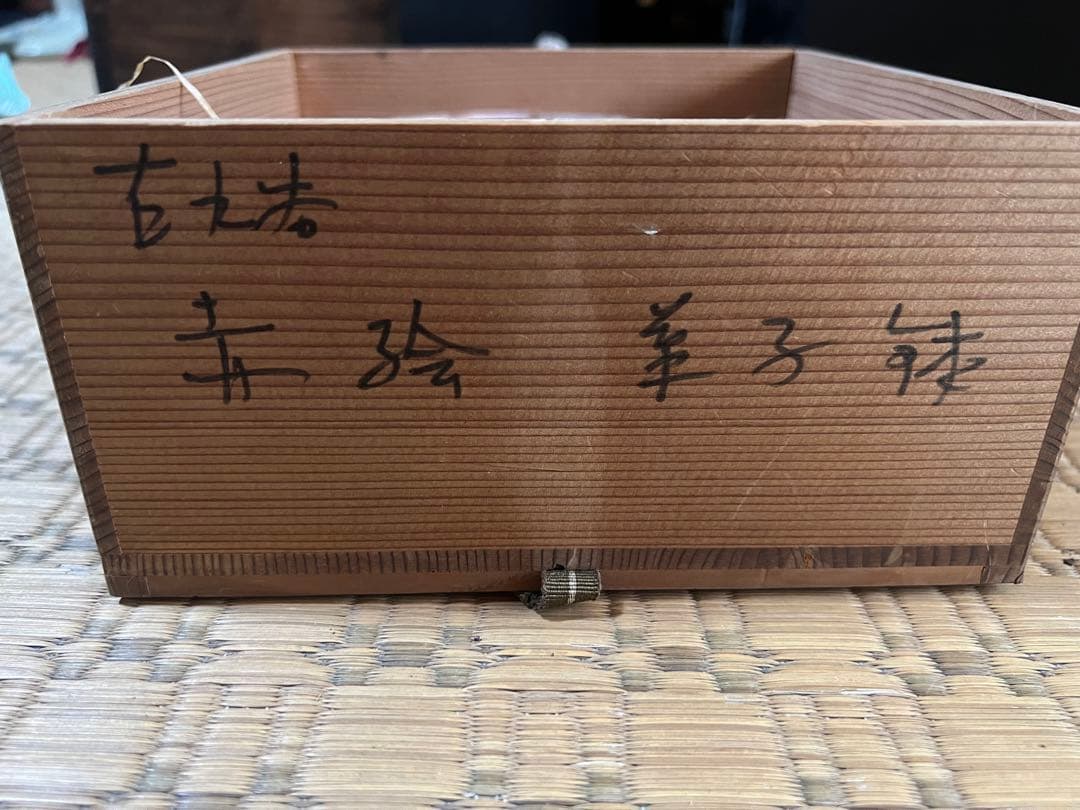 古九谷
赤絵 菓子鉢